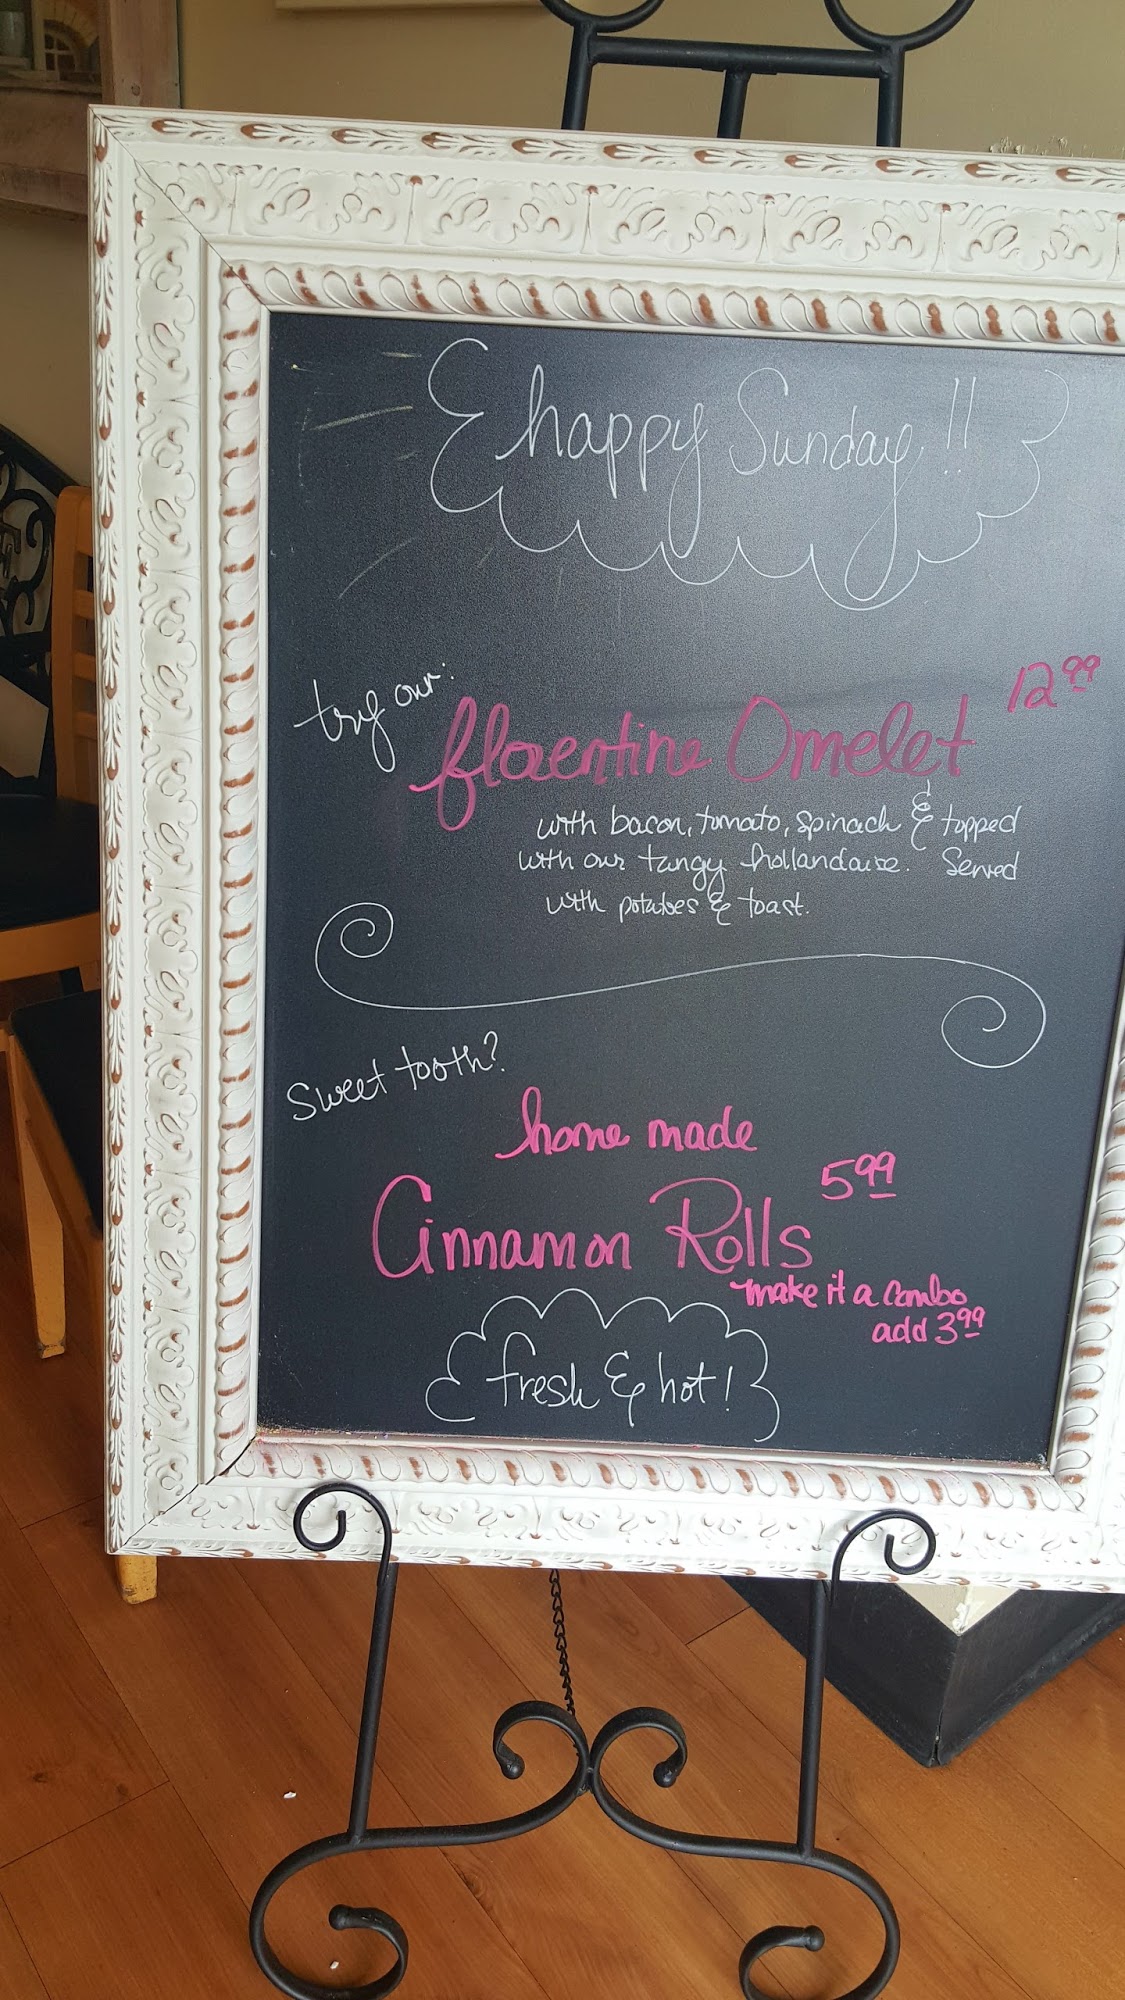 happy Sunday!!
try our:
florentine Omelet 12.99
with bacon, tomato, spinach & topped
with our tangy hollandaise. Served
with potatoes & toast.
Sweet tooth?
home made
Cinnamon Rolls 5.99
make it a combo
add 3.99
fresh & hot!